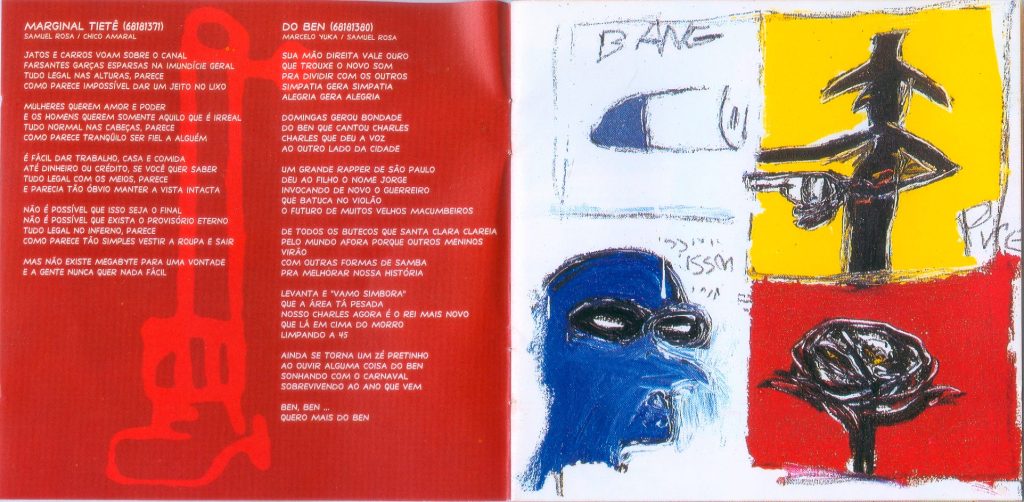 MARGINAL TIETÊ (68181371)
SAMUEL ROSA / CHICO AMARAL
JATOS E CARROS VOAM SOBRE O CANAL
FARSANTES GARÇAS ESPARSAS NA IMUNDÍCIE GERAL
TUDO LEGAL NAS ALTURAS, PARECE
COMO PARECE IMPOSSÍVEL DAR UM JEITO NO LIXO
MULHERES QUEREM AMOR E PODER
E OS HOMENS QUEREM SOMENTE AQUILO QUE É IRREAL
TUDO NORMAL NAS CABEÇAS, PARECE
COMO PARECE TRANQÜILO SER FIEL A ALGUÉM
É FÁCIL DAR TRABALHO, CASA E COMIDA
ATÉ DINHEIRO OU CRÉDITO, SE VOCÊ QUER SABER
TUDO LEGAL COM OS MEIOS, PARECE
E PARECIA TÃO ÓBVIO MANTER A VISTA INTACTA
NÃO É POSSÍVEL QUE ISSO SEJA O FINAL
NÃO É POSSÍVEL QUE EXISTA O PROVISÓRIO ETERNO
TUDO LEGAL NO INFERNO, PARECE
COMO PARECE TÃO SIMPLES VESTIR A ROUPA E SAIR
MAS NÃO EXISTE MEGABYTE PARA UMA VONTADE
E A GENTE NUNCA QUER NADA FÁCIL
DO BEN (68181380)
MARCELO YUKA / SAMUEL ROSA
SUA MÃO DIREITA VALE OURO
QUE TROUXE O NOVO SOM
PRA DIVIDIR COM OS OUTROS
SIMPATIA GERA SIMPATIA
ALEGRIA GERA ALEGRIA
DOMINGAS GEROU BONDADE
DO BEN QUE CANTOU CHARLES
CHARLES QUE DEU A VOZ
AO OUTRO LADO DA CIDADE
UM GRANDE RAPPER DE SÃO PAULO
DEU AO FILHO O NOME JORGE
INVOCANDO DE NOVO O GUERREIRO
QUE BATUCA NO VIOLÃO
O FUTURO DE MUITOS VELHOS MACUMBEIROS
DE TODOS OS BUTECOS QUE SANTA CLARA CLAREIA
PELO MUNDO AFORA PORQUE OUTROS MENINOS
VIRÃO
COM OUTRAS FORMAS DE SAMBA
PRA MELHORAR NOSSA HISTÓRIA
LEVANTA E "VAMO SIMBORA"
QUE A ÁREA TÁ PESADA
NOSSO CHARLES AGORA É O REI MAIS NOVO
QUE LÁ EM CIMA DO MORRO
LIMPANDO A 45
AINDA SE TORNA UM ZÉ PRETINHO
AO OUVIR ALGUMA COISA DO BEN
SONHANDO COM O CARNAVAL
SOBREVIVENDO AO ANO QUE VEM
BEN, BEN ...
QUERO MAIS DO BEN
BANG